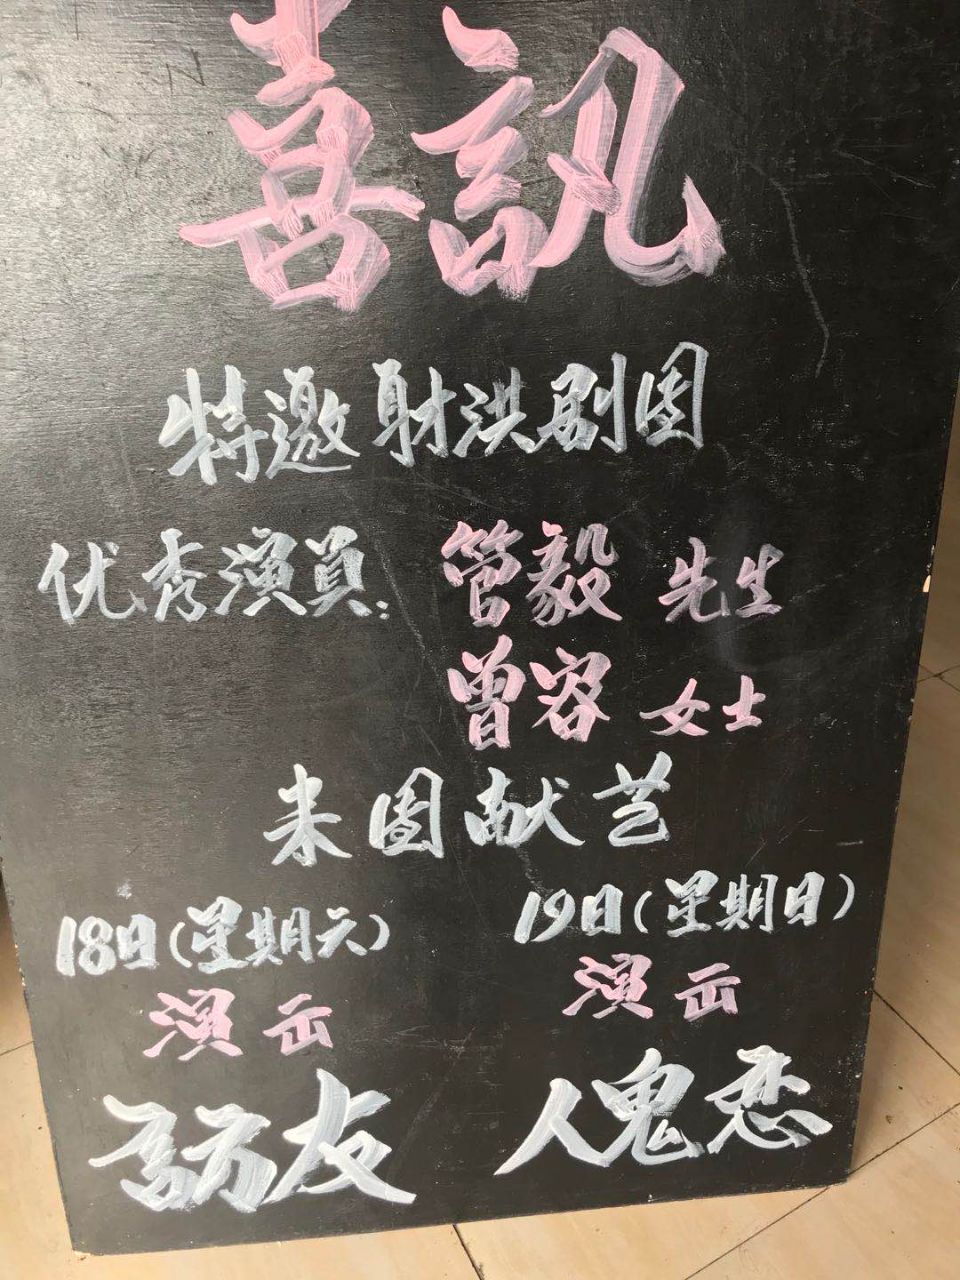 喜訊
特邀射洪剧团
优秀演員: 管毅 先生
曾容 女士
来团献艺
18日(星期六) 19日(星期日)
演出 演出
訪友 人鬼恋